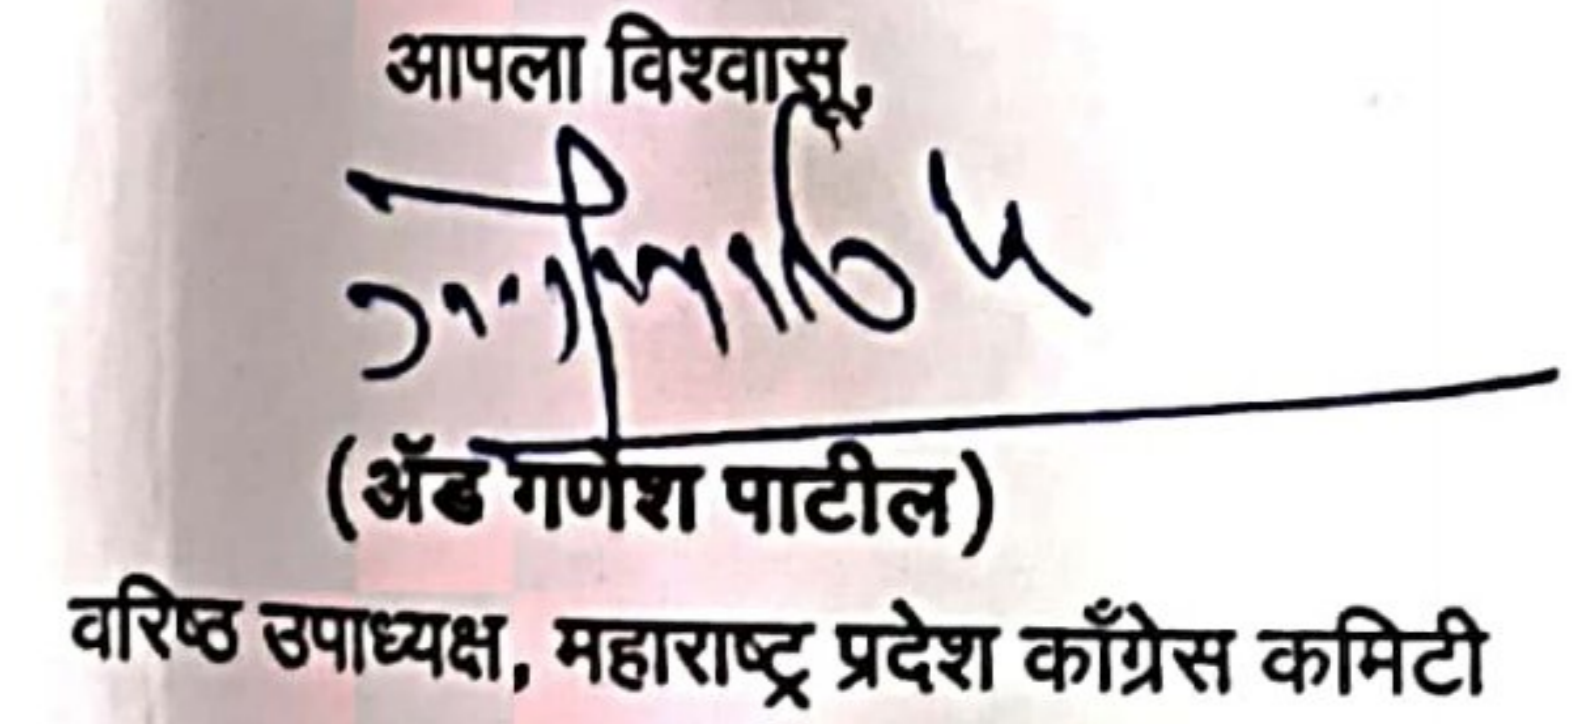 आपला विश्वासू,
(ॲड गणेश पाटील)
वरिष्ठ उपाध्यक्ष, महाराष्ट्र प्रदेश काँग्रेस कमिटी